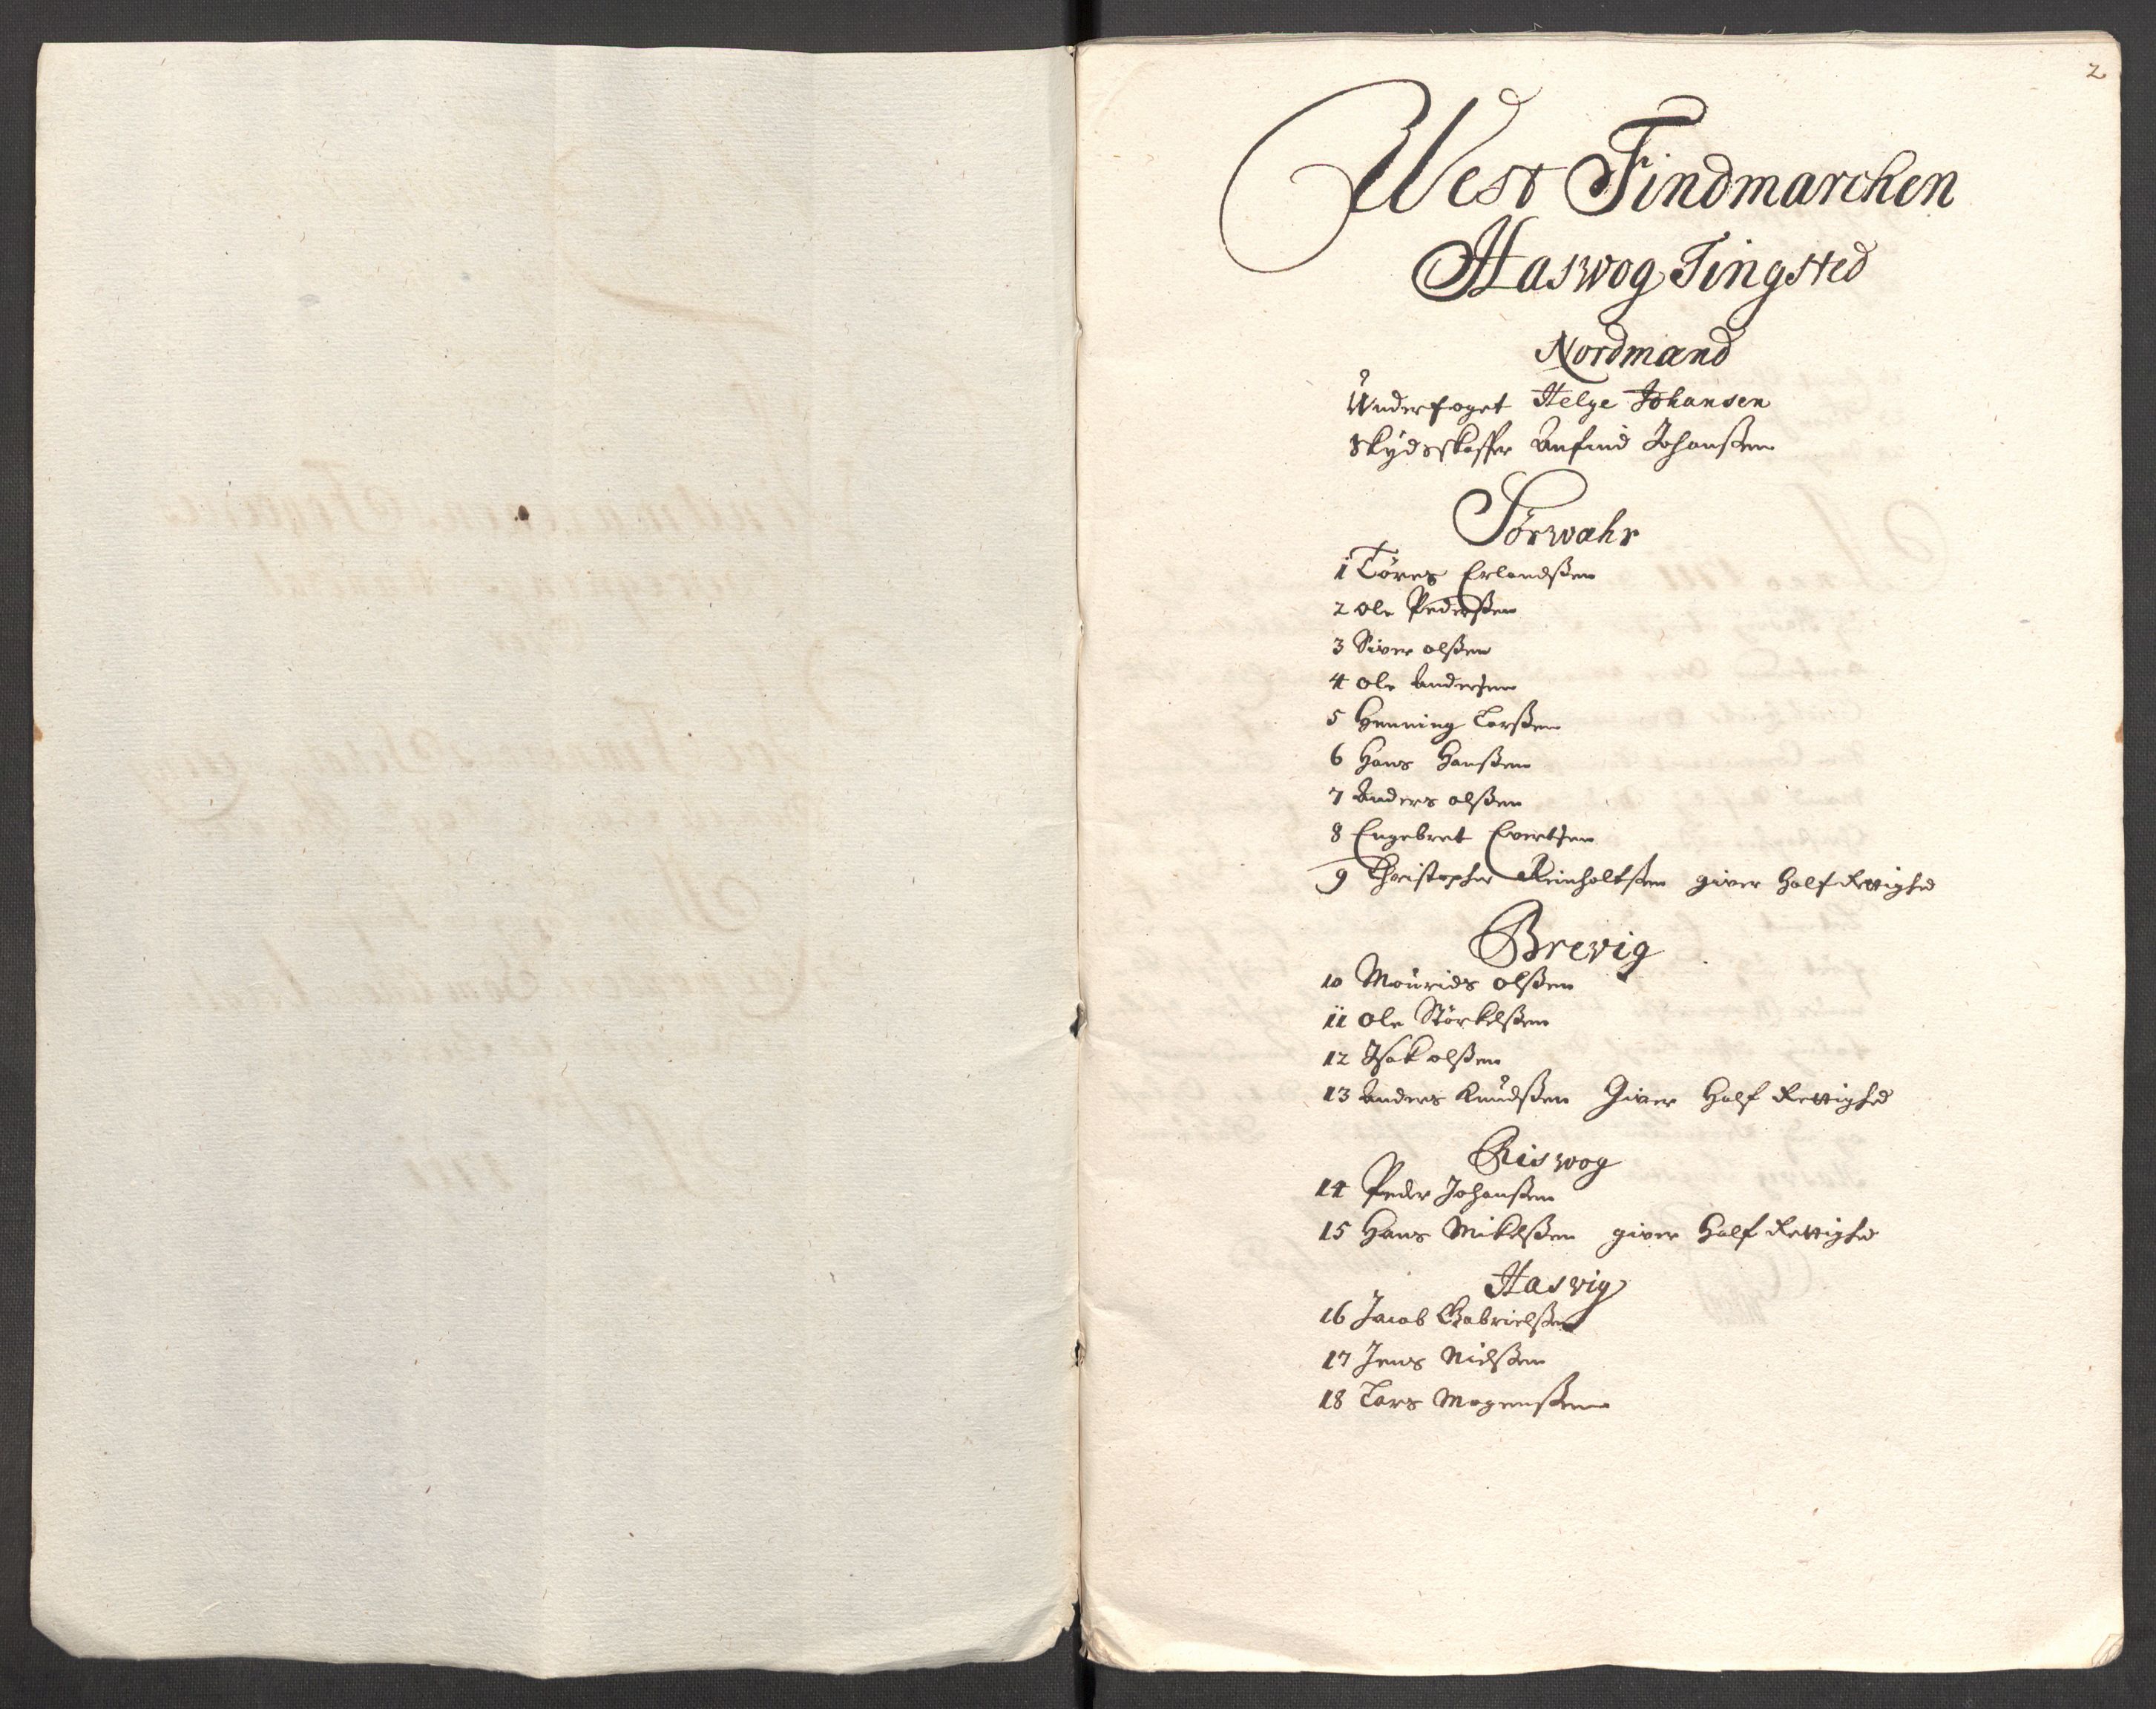 2
West Findmarchen
Haswog Tingsted
Nordmænd
Underfoget Helge Johansen
Skydsskaffer Anfind Johanßen
Sørwahr
1 Tøres Erlandßen
2 Ole Pederßen
3 Siver olßen
4 Ole Andersen
5 Henning Larßen
6 Hans Hanßen
7 Anders olßen
8 Engebret Evertsen
9 Christopher Reinholtßen giver Half Rettighed
Brevig
10 Mourids olßen
11 Ole Størkelßen
12 Isak olßen
13 Anders Knudßen Giver Half Rettighed
Riswog
14 Peder Johanßen
15 Hans Mikelßen giver Half Rettighed
Hasvig
16 Jacob Gabrielßen
17 Jens Nielßen
18 Lars Mogenßen